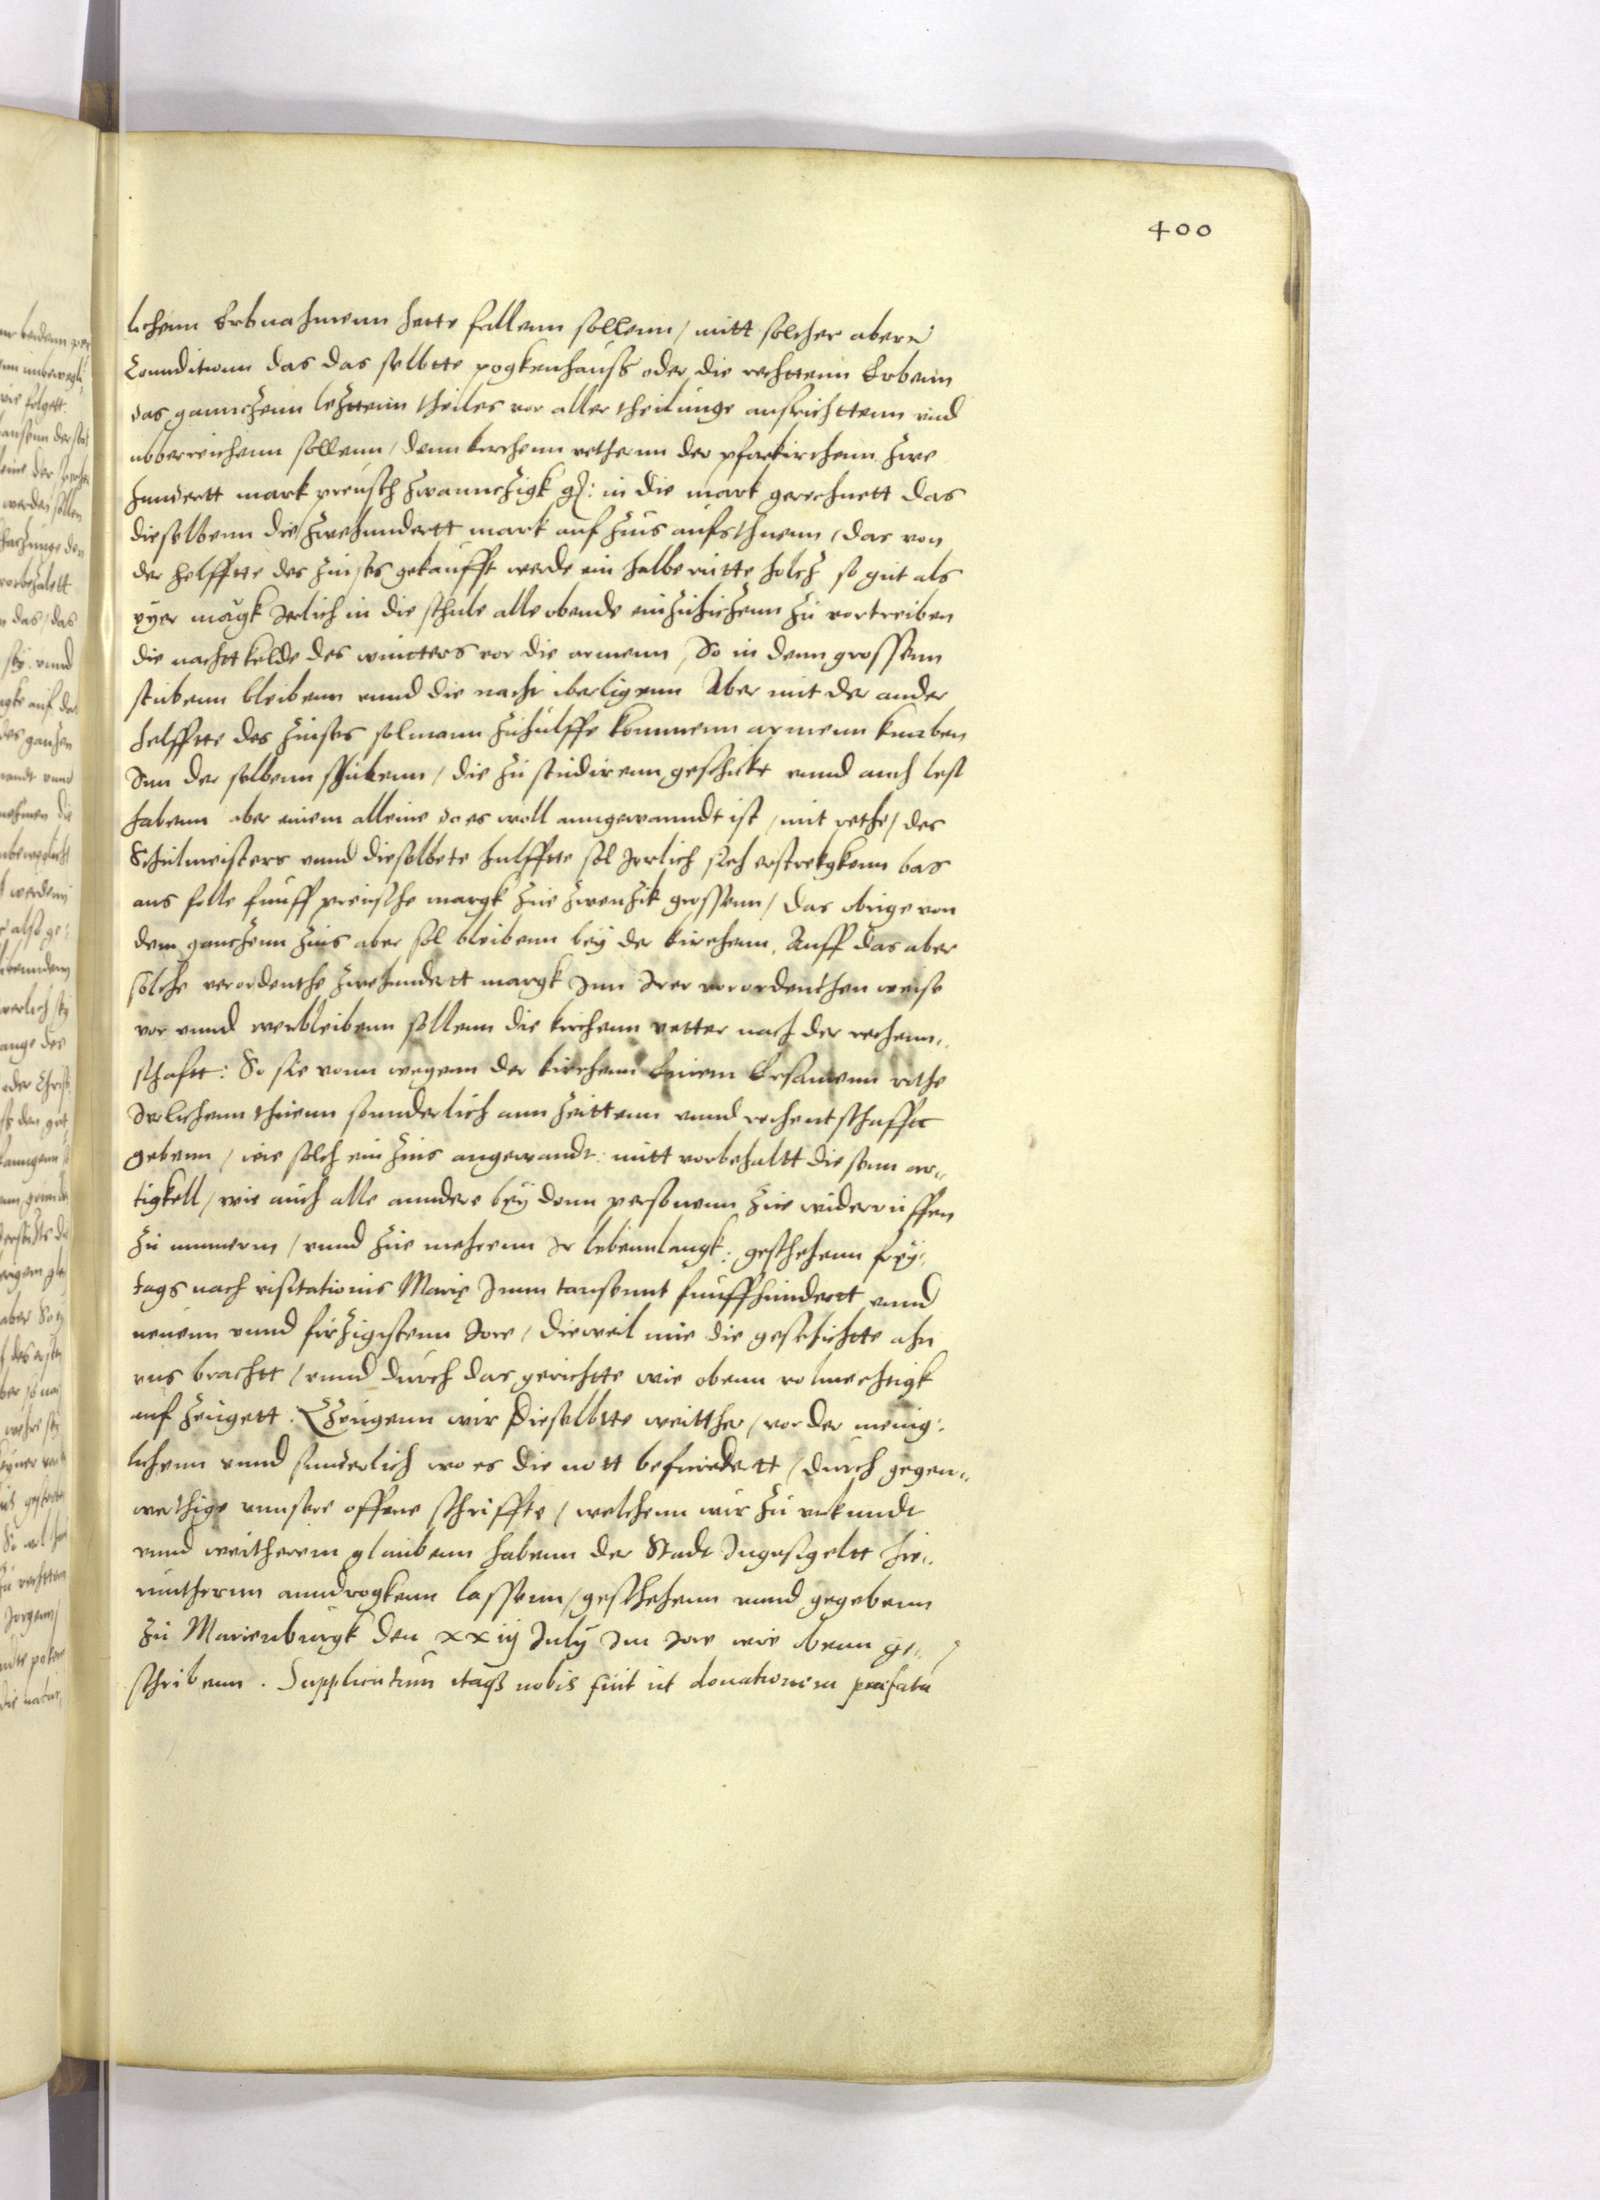 400
lichenn Erbnahmenn hette fallenn sollenn / mitt solcher abern
Conndittionn das das selbtte pogkenhauss oder die rechttenn Erbenn
das gannczenn leczttenn theiles vor aller theilunge ausrichttenn vnd
vbberreichenn sollenn / denn kirchenn vethernn der pfarkirchenn zwe
hundertt mark preusch zwannczigk g: in die mark gerechnett das
dieselbenn die zwehundertt mark auf zins aufsthuenn / das von
der helfftte des zinses gekaufft werde ein halbe rutte holcz so gut als
yger magk Jerlich in die schule alle obende einzuhiczenn zu vortreiben
die nachtt kelde des wintters vor die armenn, So in denn grossenn
stubenn bleibenn vnnd die nacht vberligenn Aber mit der ander
helfftte des zinses solmann zuhulffe kommenn armenn knaben
Inn der selbenn schulenn / die zu studirenn geschickt vnnd auch lest
habenn aber einem alleine do es woll anngewanndt ist / mit rethe / des
Schulmeisters vnnd dieselbete hulfftte sol Jerlich sich erstrekgkenn bas
ans folle funff preusche margk zue zwenzik grossenn / das vbrige von
dem ganczenn zins aber sol bleibenn bey der kirchenn. Auff das aber
solche verordenthe zwehundertt margk Inn Irer vorordenthen weise
vor vnnd verbleibenn sollenn die kirchenn vetter nach der rechenn„
schaftt: So sie vonn wegenn der kirchenn Einem Ersamenn rathe
Jerlichenn thuenn sonnderlich ann zeittenn vnnd rechentschafftt
gebenn / wie solch ein zins angewandt: mitt vorbehaltt diesenn ar„
tigkell / wie auch alle anndere bey denn personenn zue widerruffen
zu mynnern / vnnd zue mehrenn Ir lebennlangk: geschehenn frey„
tags nach visitationis Marię Imm tausennt funffhundertt vnnd
neuenn vnnd firzigistenn Jore / dieweil nue die geschichtte ahn
vns brachtt / vnnd durch das gerichtte wie obenn volmechtigk
auf zeugett. Czeugenn wir dieselbtte weitther / vor der menig„
lichenn vnnd sunderlich wo es die nott befurdertt / durch gegen„
werthige vnnsere offene schriffte / welchenn wir zu vrkundt
vnnd weitherem glaubenn habenn der Stadt Ingesigeltt hie„
runthernn anndrogkenn lassenn / geschehenn vnnd gegebenn
zu Marienburgk den xxiij July Im Jore wie obenn ge„
schribenn. Supplicatum itaque nobis fuit ut donationem praefatam